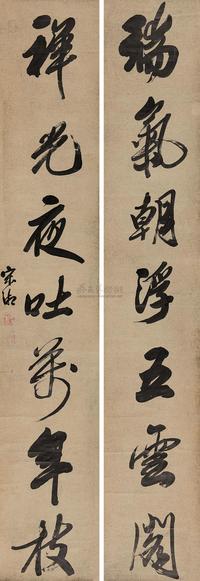 瑞氣朝浮五雲閣
祥光夜吐萬年枝
宋湘